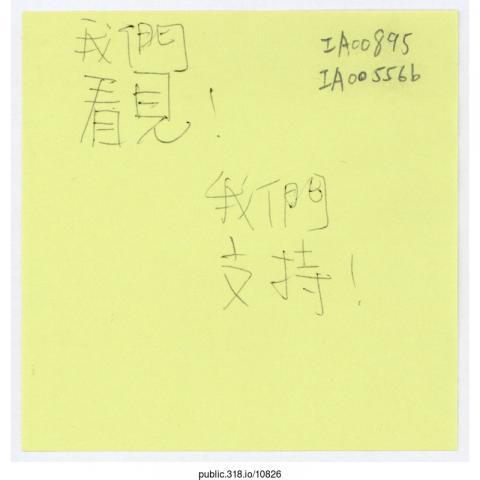 我們
看見！
IA00895
IA00556b
我們
支持！
public.318.io/10826